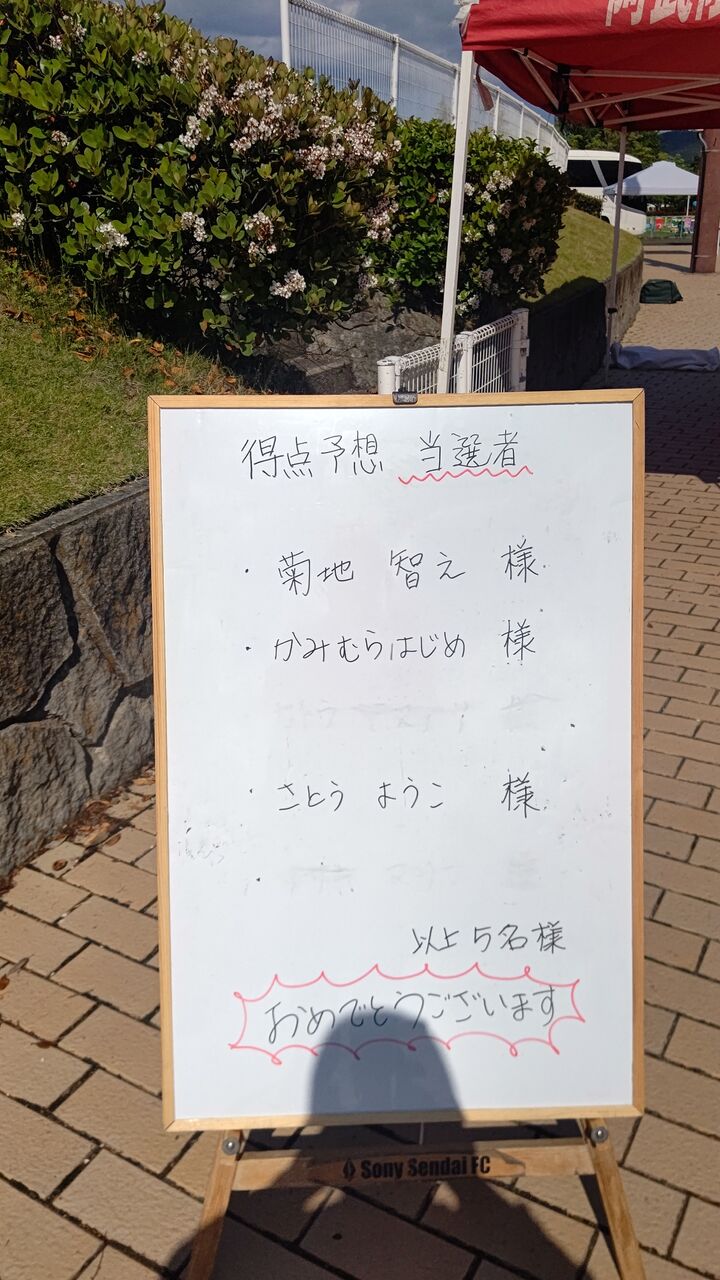 得点予想 当選者
・菊地 智え 様
・かみむらはじめ 様
・さとう ようこ 様
以上5名様
おめでとうございます
Sony Sendai FC